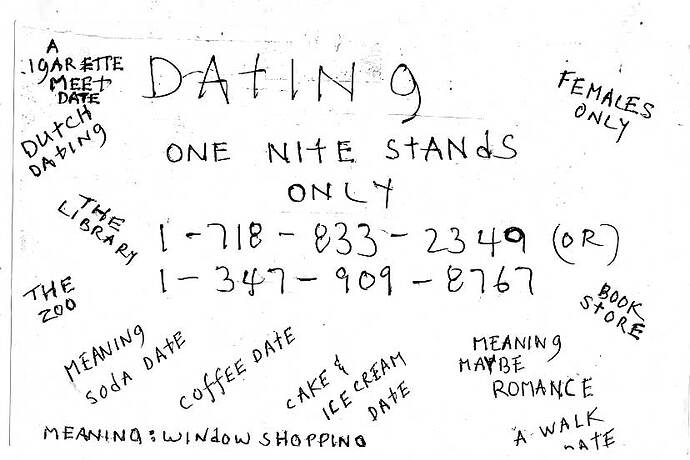 A
.IgARETTE
MEET
DATE
DUtCH
DAtINg
DAtINg
FEMALES
ONLY
ONE NItE StANdS
ONLY
THE
LIBRARY
1-718-833-2349 (OR)
1-347-909-8767
THE
ZOO
BOOK
StORE
MEANING
SODA DATE
COffEE DATE
CAKE &
ICE CREAM
DAtE
MEANINg
MAYBE
ROMANCE
A WALK
DATE
MEANINg: WINdOW SHOPPINg